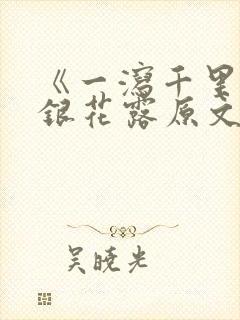 《一瀉千里
銀花露原文
吴曉光